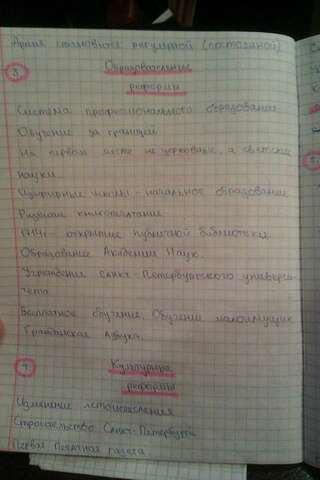 Армия становится регулярной (постоянной)
3 Образовательные
реформы
Система профессионального образования
Обучение за границей
На первом месте не церковные, а светские
науки.
Цифирные школы - начальное образование
Развитие книгопечатания.
1714г - открытие публичной библиотеки.
Образование Академии Наук.
Учреждение Санкт-Петербургского универси-
тета
Бесплатное обучение, Обучение малоимущих
Гражданская Азбука.
Культурные
реформы
Изменение летоисчисления
Строительство Санкт-Петербурга
Первая Печатная газета